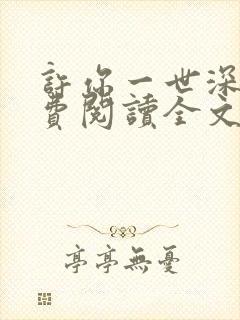 許你一世深
費閱讀全文
亭亭無憂